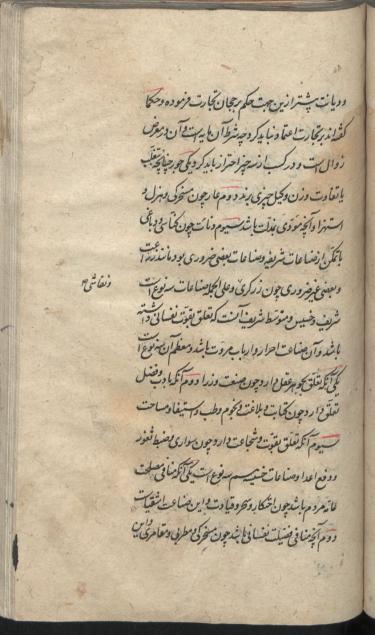 و دیانت پیشتر ازین جهت حکم برجحان تجارت فرموده و حکما
گفته‌اند بر تجارت اعتماد نباید کرد چه شرط آن مایه است و آن در معرض
زوال است و در کسب از سه چیز احتراز باید کرد یکی جور چنانچه تغلب
یا تفاوت وزن و کیل چیزی برند دوم عار چون مسخرکی و هزل و
استهزا و آنچه مودی بمذلت باشد سیوم دنائت چون کناسی و دباغی
با تمکن از صناعات شریفه و صناعات بعضی ضروری بود مانند زراعت
و بعضی غیر ضروری چون زرگری و علی الجمله صناعات سه نوع است
و نقاشی
شریف و خسیس و متوسط شریف آنست که تعلق بقوت نفسانی داشته
باشد و آن صناعت احرار و ارباب مروت باشد و معظم آن سه نوع است
یکی آنکه تعلق بجوهر عقل دارد چون صنعت وزرا دوم آنکه بادب و فضل
تعلق دارد چون کتابت و بلاغت و نجوم و طب و استیفا و مساحت
سیوم آنکه تعلق بقوت و شجاعت دارد چون سواری و ضبط ثغور
و دفع اعدا و صناعات خسیسه هم سه نوع است یکی آنکه منافی مصلحت
عامه مردم باشد چون احتکار و سحر و قیادت و این صناعت اشقیاست
دوم آنچه منافی فضیلت نفسانی باشد چون مسخرکی و مطربی و مقامری و این